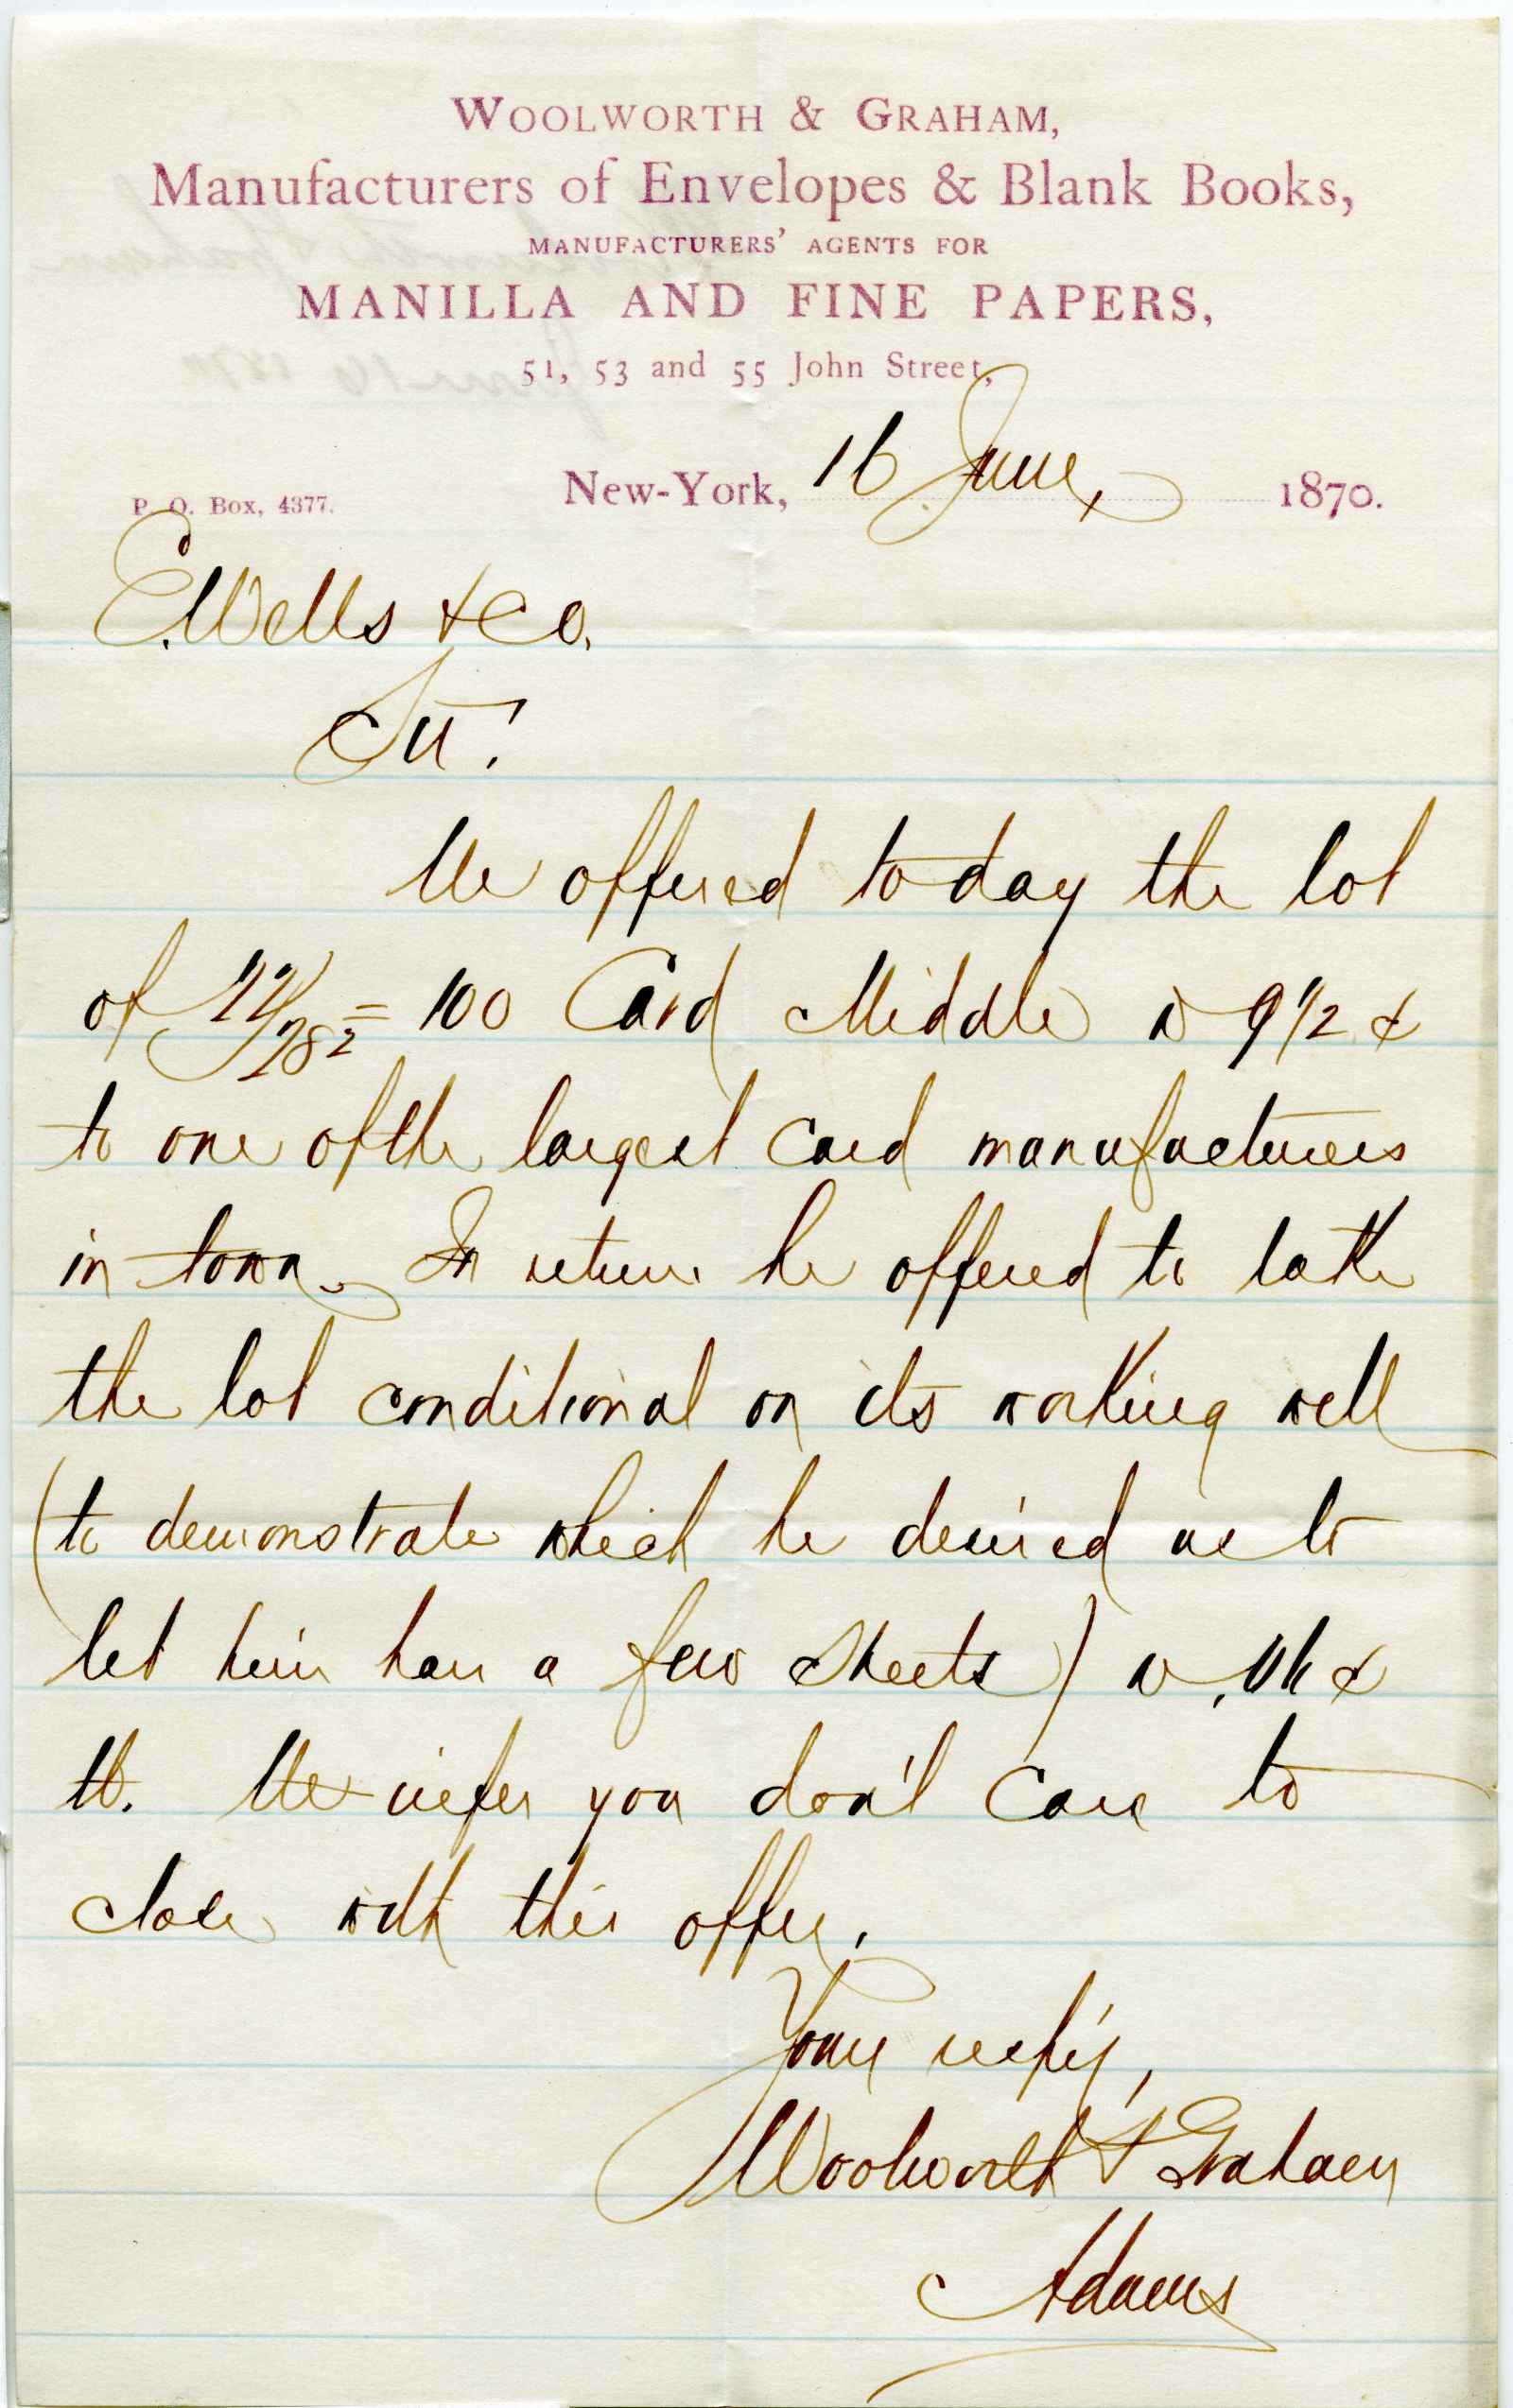 WOOLWORTH & GRAHAM,
Manufacturers of Envelopes & Blank Books,
MANUFACTURERS' AGENTS FOR
MANILLA AND FINE PAPERS,
51, 53 and 55 John Street,
P. O. Box, 4377. New-York, 16 June, 1870.
E. Wells & Co.
Sir!
We offered today the lot
of 22/28 = 100 Card Middle 9 1/2
to one of the largest card manufacturers
in town. In return he offered to take
the lot conditional on its working well
(to demonstrate which he desired us to
let him have a few sheets)
lb. We infer you don't care to
close with this offer.
Yours resp'y,
Woolworth & Graham
Adams